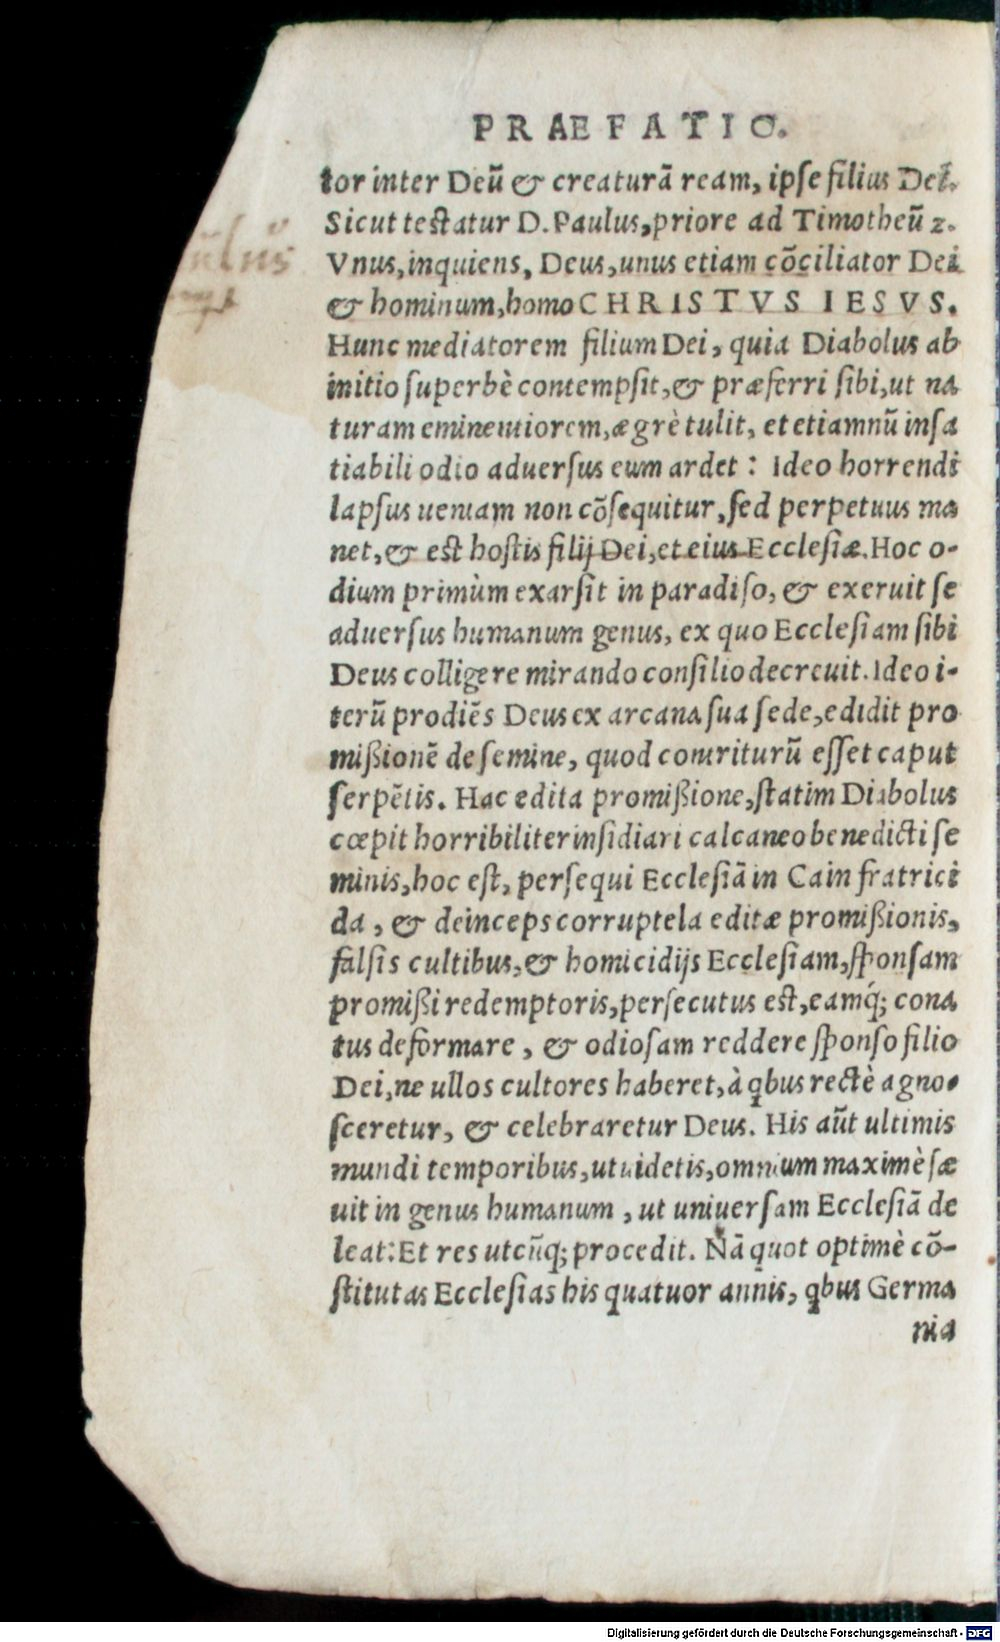 PRAEFATIO.
tor inter Deū & creaturā ream, ipſe filius Dei.
Sicut teſtatur D. Paulus, priore ad Timotheū 2.
Vnus, inquiens, Deus, unus etiam cōciliator Dei
& hominum, homo CHRISTVS IESVS.
Hunc mediatorem filium Dei, quia Diabolus ab
initio ſuperbè contempſit, & præferri ſibi, ut na
turam eminentiorem, ægrè tulit, et etiamnū inſa
tiabili odio aduerſus eum ardet: Ideo horrendi
lapſus ueniam non cōſequitur, ſed perpetuus ma
net, & eſt hoſtis filij Dei, et eius Eccleſiæ. Hoc o-
dium primùm exarſit in paradiſo, & exeruit ſe
aduerſus humanum genus, ex quo Eccleſiam ſibi
Deus colligere mirando conſilio decreuit. Ideo i-
terū prodiēs Deus ex arcana ſua ſede, edidit pro
mißionē de ſemine, quod contriturū eſſet caput
ſerpētis. Hac edita promißione, ſtatim Diabolus
cœpit horribiliter inſidiari calcaneo benedicti ſe
minis, hoc eſt, perſequi Eccleſiā in Cain fratrici
da, & deinceps corruptela editæ promißionis,
falſis cultibus, & homicidijs Eccleſiam, ſponſam
promißi redemptoris, perſecutus eſt, eamq́; cona
tus deformare, & odioſam reddere ſponſo filio
Dei, ne ullos cultores haberet, à ꝗbus rectè agno-
ſceretur, & celebraretur Deus. His aūt ultimis
mundi temporibus, ut uidetis, omnium maximè ſæ
uit in genus humanum, ut uniuerſam Eccleſiā de
leat: Et res utcūq; procedit. Nā quot optimè cō-
ſtitutas Eccleſias his quatuor annis, ꝗbus Germa
nia
Digitalisierung gefördert durch die Deutsche Forschungsgemeinschaft - DFG